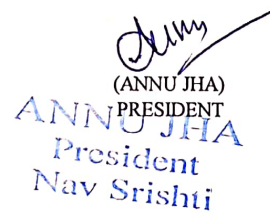 (ANNU JHA)
PRESIDENT
ANNU JHA
President
Nav Srishti